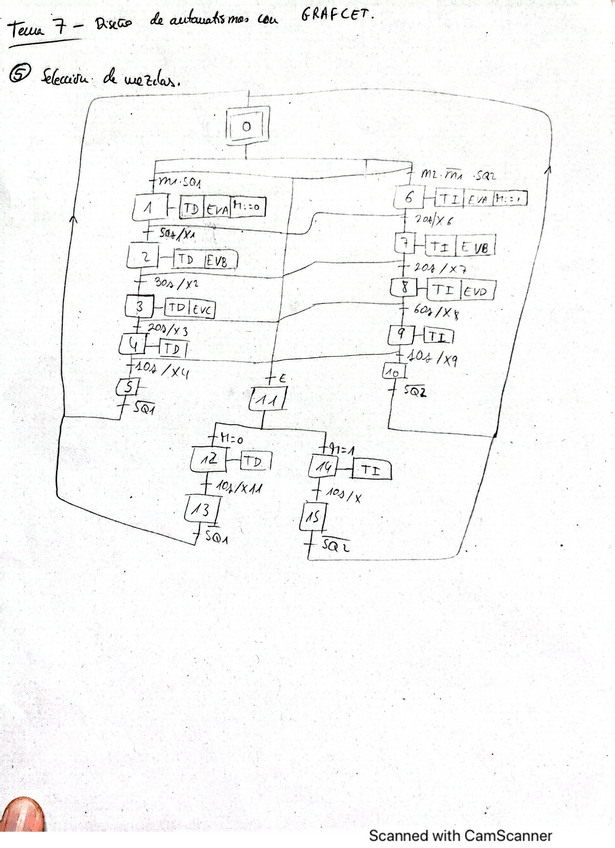 Tema 7 - Diseño de automatismos con GRAFCET.
⑤ Selección de mezclas.
0
m1·SQ1
m2·m̅1̅·SQ2
1 TD EVA M:=0
6 TI EVA M:=1
50s/X1
20s/X6
2 TD EVB
7 TI EVB
30s/X2
20s/X7
3 TD EVC
8 TI EVD
20s/X3
60s/X8
4 TD
9 TI
10s/X4
10s/X9
5
10
S̅Q̅1̅
S̅Q̅2̅
E
11
M=0
M=1
12 TD
14 TI
10s/X11
10s/X
13
15
S̅Q̅1̅
S̅Q̅2̅
Scanned with CamScanner